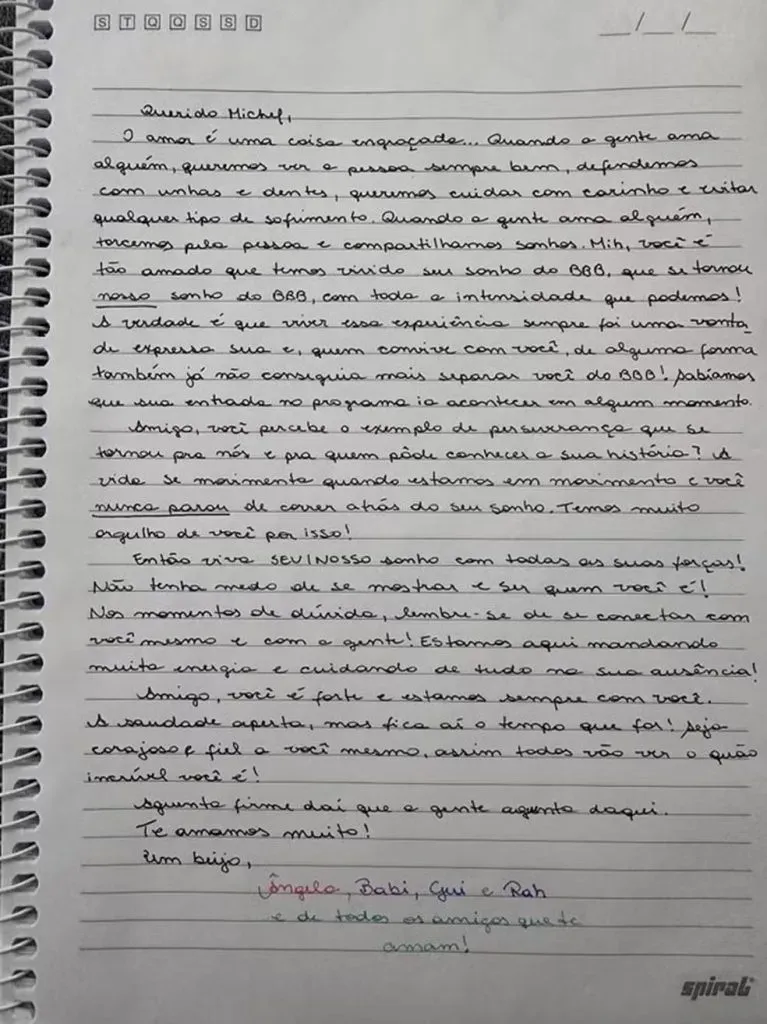 S T Q Q S S D
__/__/__
Querido Michel,
O amor é uma coisa engraçada... Quando a gente ama
alguém, queremos ver a pessoa sempre bem, defendemos
com unhas e dentes, queremos cuidar com carinho e evitar
qualquer tipo de sofrimento. Quando a gente ama alguém,
torcemos pela pessoa e compartilhamos sonhos. Mih, você é
tão amado que temos vivido seu sonho do BBB, que se tornou
nosso sonho do BBB, com toda a intensidade que podemos!
A verdade é que viver essa experiência sempre foi uma vonta
de expressa sua e, quem convive com você, de alguma forma
também já não conseguia mais separar você do BBB! Sabíamos
que sua entrada no programa ia acontecer em algum momento.
Amigo, você percebe o exemplo de perseverança que se
tornou pra nós e pra quem pôde conhecer a sua história? A
vida se movimenta quando estamos em movimento e você
nunca parou de correr atrás do seu sonho. Temos muito
orgulho de você por isso!
Então viva SEU/NOSSO sonho com todas as suas forças!
Não tenha medo de se mostrar e ser quem você é!
Nos momentos de dúvida, lembre-se de se conectar com
você mesmo e com a gente! Estamos aqui mandando
muita energia e cuidando de tudo na sua ausência!
Amigo, você é forte e estamos sempre com você.
A saudade aperta, mas fica aí o tempo que for! Seja
corajoso e fiel a você mesmo, assim todos vão ver o quão
incrível você é!
Aguenta firme daí que a gente aguenta daqui.
Te amamos muito!
Um beijo,
Ângela, Babi, Gui e Rah
e de todos os amigos que te
amam!
spiral